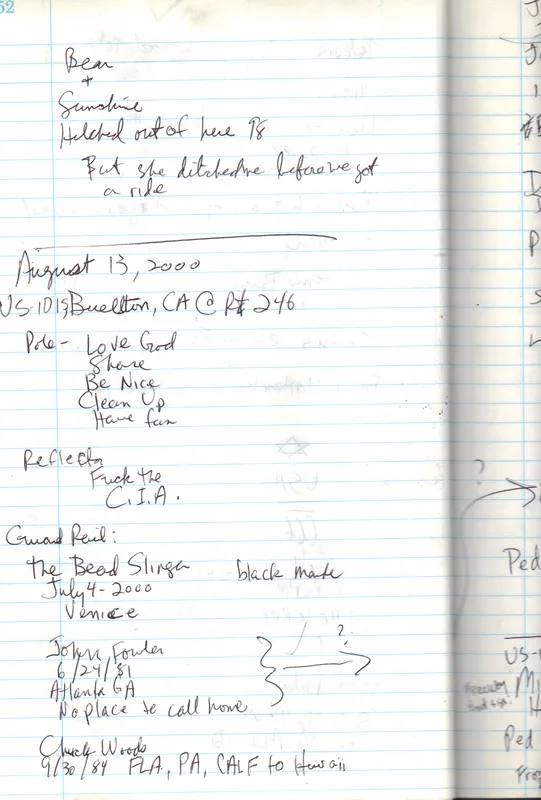 52
Bear
+
Sunshine
Hitched out of here 98
But she ditched me before we got
a ride
August 13, 2000
US-101S, Buellton, CA @ Rt 246
Pole - Love God
Share
Be Nice
Clean Up
Have fun
Reflector
Fuck the
C.I.A.
Guard Rail:
the Bead Slinger
black mark
July 4-2000
Venice
John Fowler
6/24/81
?
Atlanta GA
No place to call home
Chuck Woods
9/30/84 FLA, PA, CALF to Hawaii
?
Ped
US-
Ped